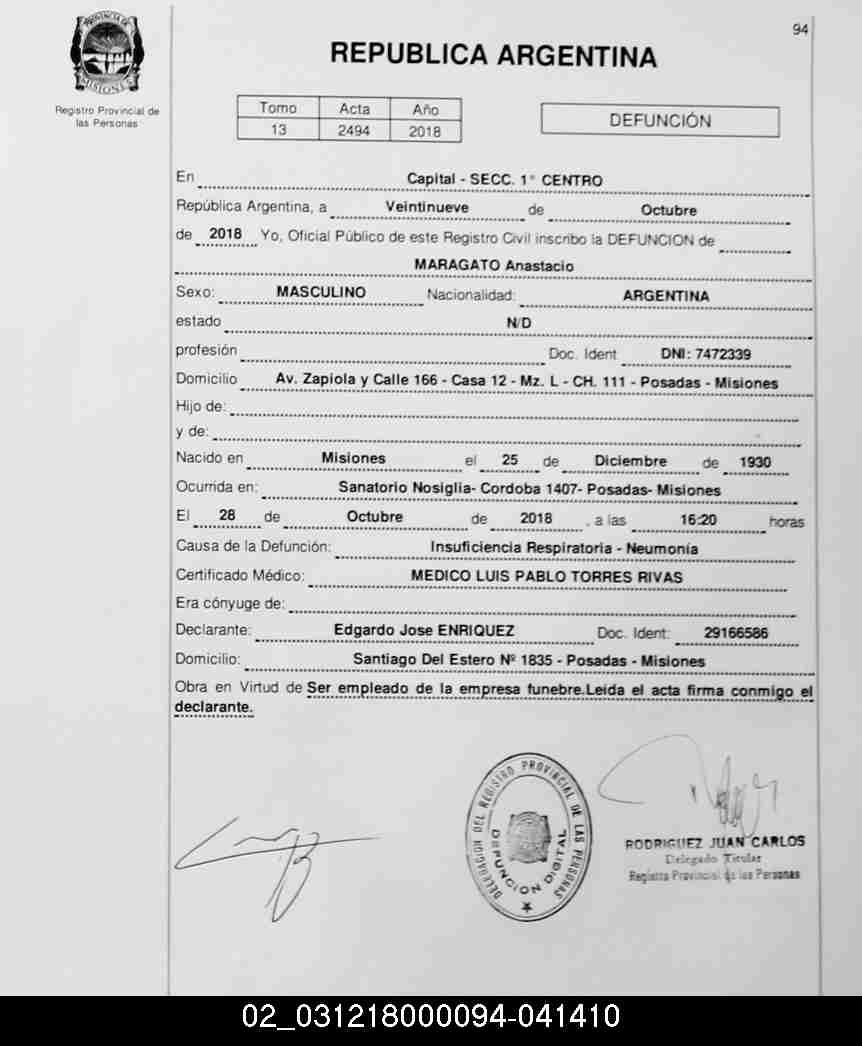 94
PROVINCIA DE
MISIONES
Registro Provincial de
las Personas
REPUBLICA ARGENTINA
Tomo Acta Año
13 2494 2018
DEFUNCIÓN
En Capital - SECC. 1° CENTRO
República Argentina, a Veintinueve de Octubre
de 2018 Yo, Oficial Público de este Registro Civil inscribo la DEFUNCION de
MARAGATO Anastacio
Sexo: MASCULINO Nacionalidad: ARGENTINA
estado N/D
profesión Doc. Ident DNI: 7472339
Domicilio Av. Zapiola y Calle 166 - Casa 12 - Mz. L - CH. 111 - Posadas - Misiones
Hijo de:
y de:
Nacido en Misiones el 25 de Diciembre de 1930
Ocurrida en: Sanatorio Nosiglia- Cordoba 1407- Posadas- Misiones
El 28 de Octubre de 2018 , a las 16:20 horas
Causa de la Defunción: Insuficiencia Respiratoria - Neumonía
Certificado Médico: MEDICO LUIS PABLO TORRES RIVAS
Era cónyuge de:
Declarante: Edgardo Jose ENRIQUEZ Doc. Ident: 29166586
Domicilio: Santiago Del Estero Nº 1835 - Posadas - Misiones
Obra en Virtud de Ser empleado de la empresa funebre.Leída el acta firma conmigo el
declarante.
DELEGACION DEL REGISTRO PROVINCIAL DE LAS PERSONAS
DEFUNCION DIGITAL
RODRIGUEZ JUAN CARLOS
Delegado Titular
Registro Provincial de las Personas
02_031218000094-041410